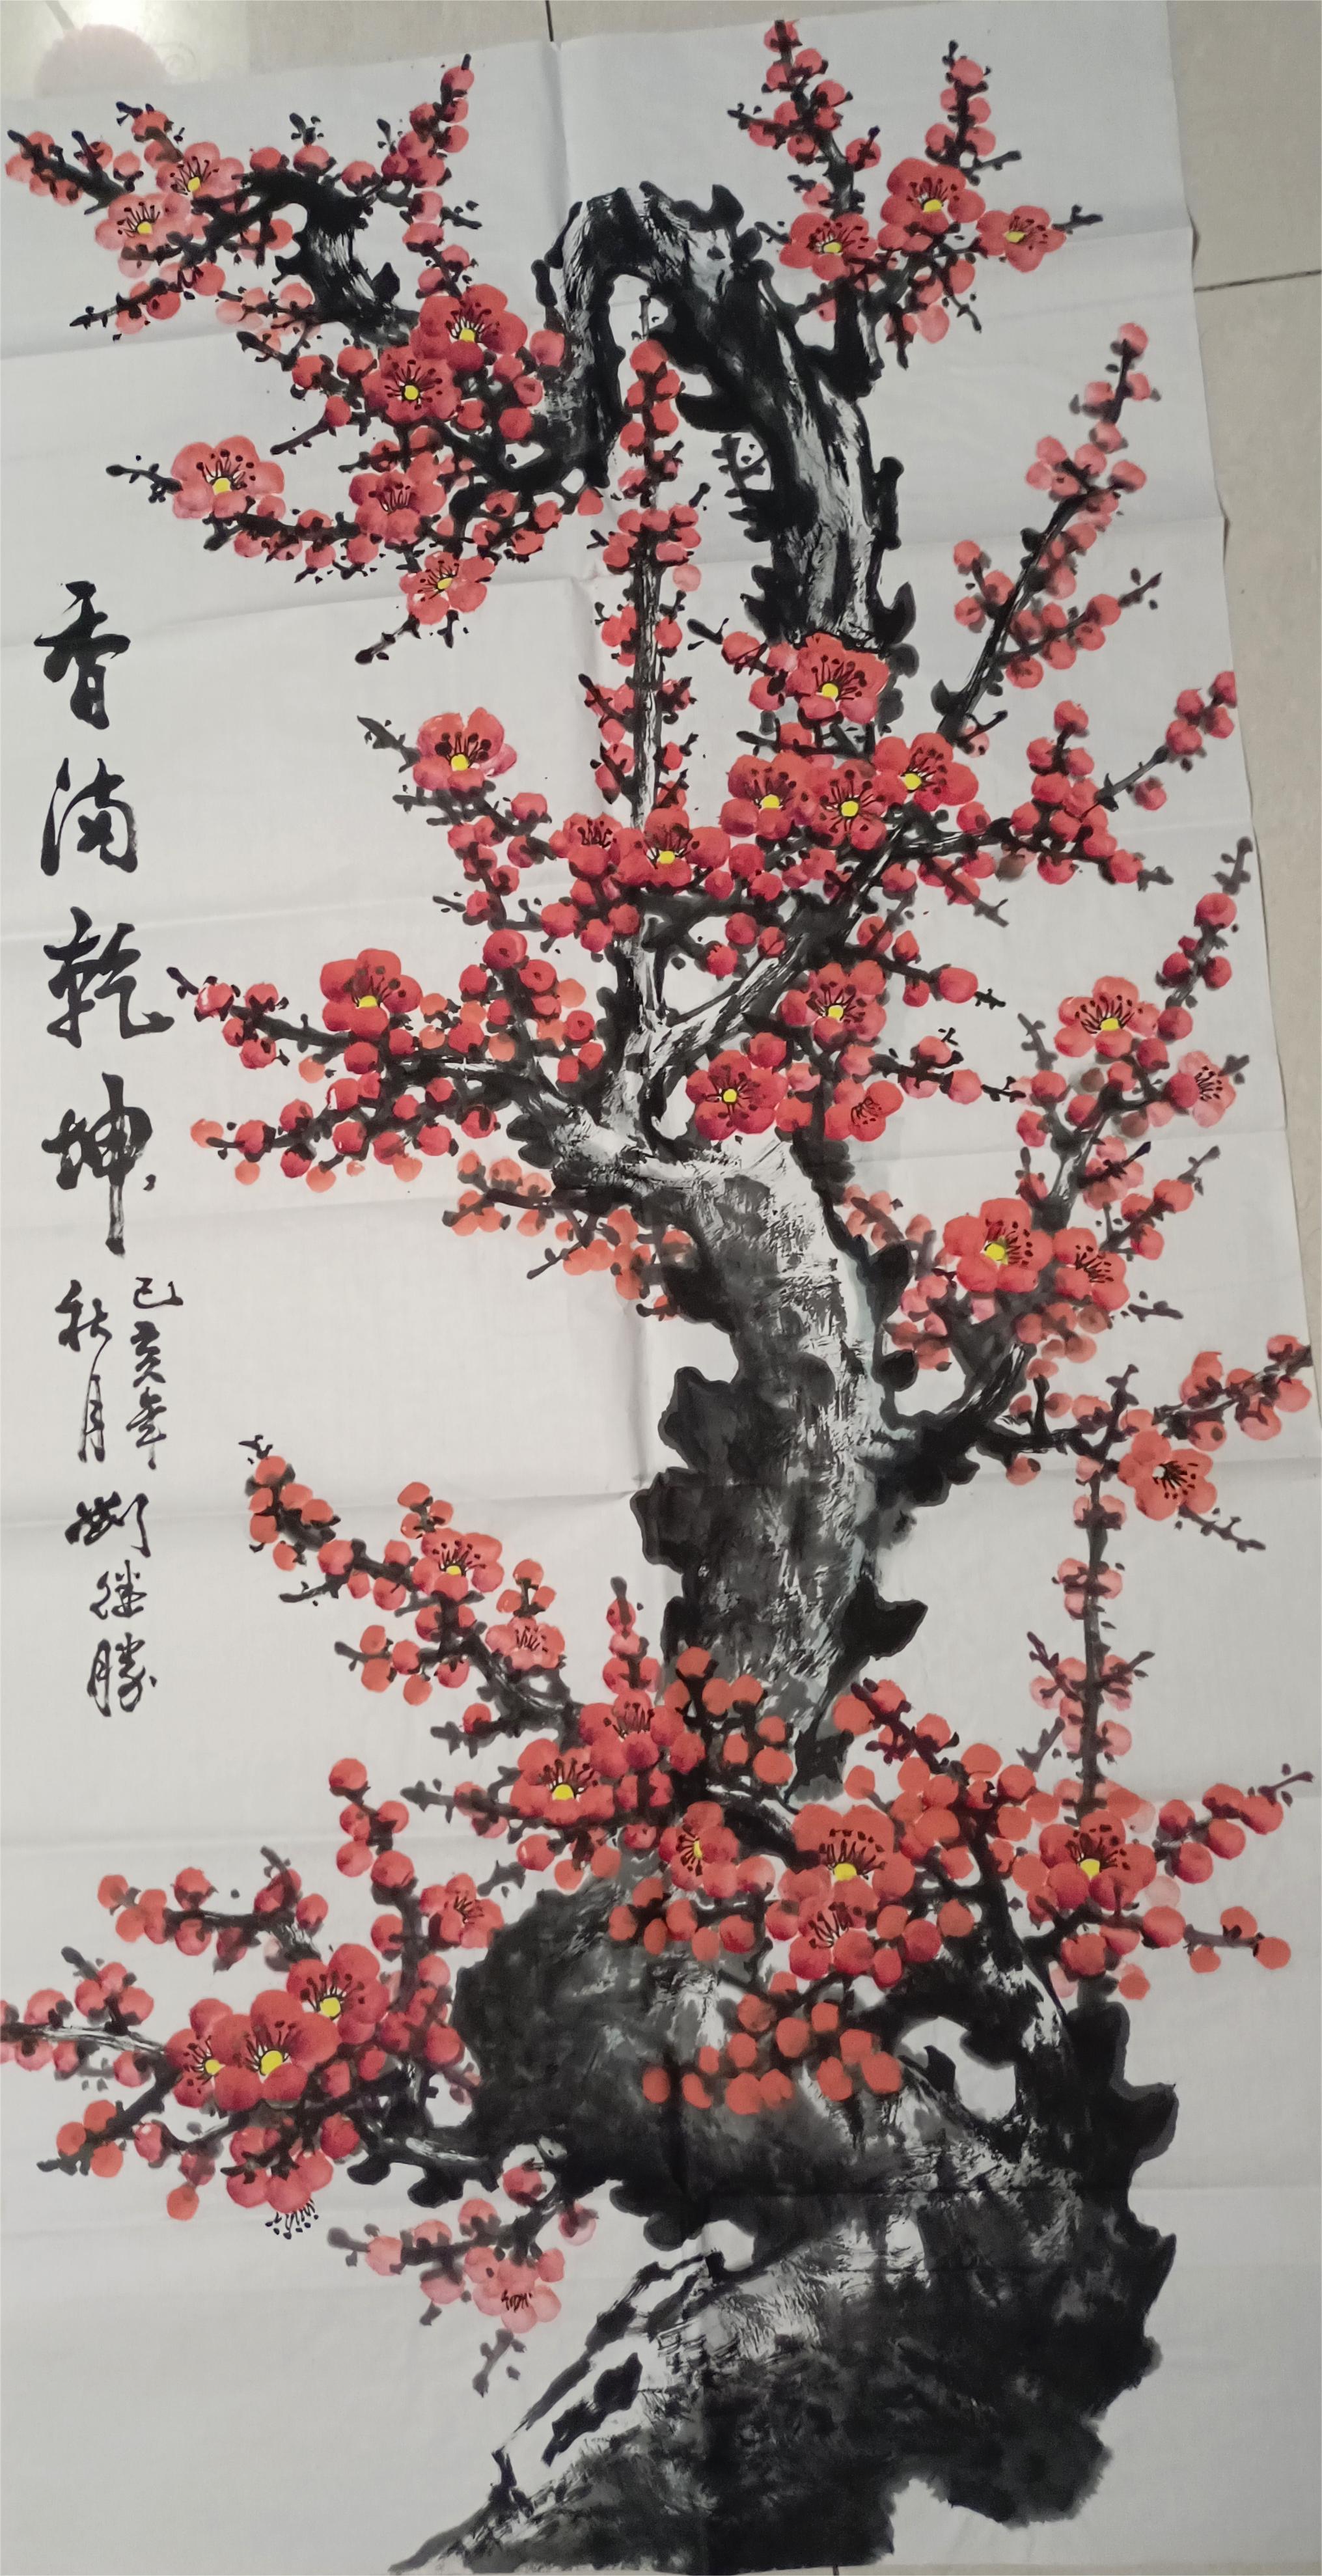 香满乾坤
己亥年
秋月 继勝